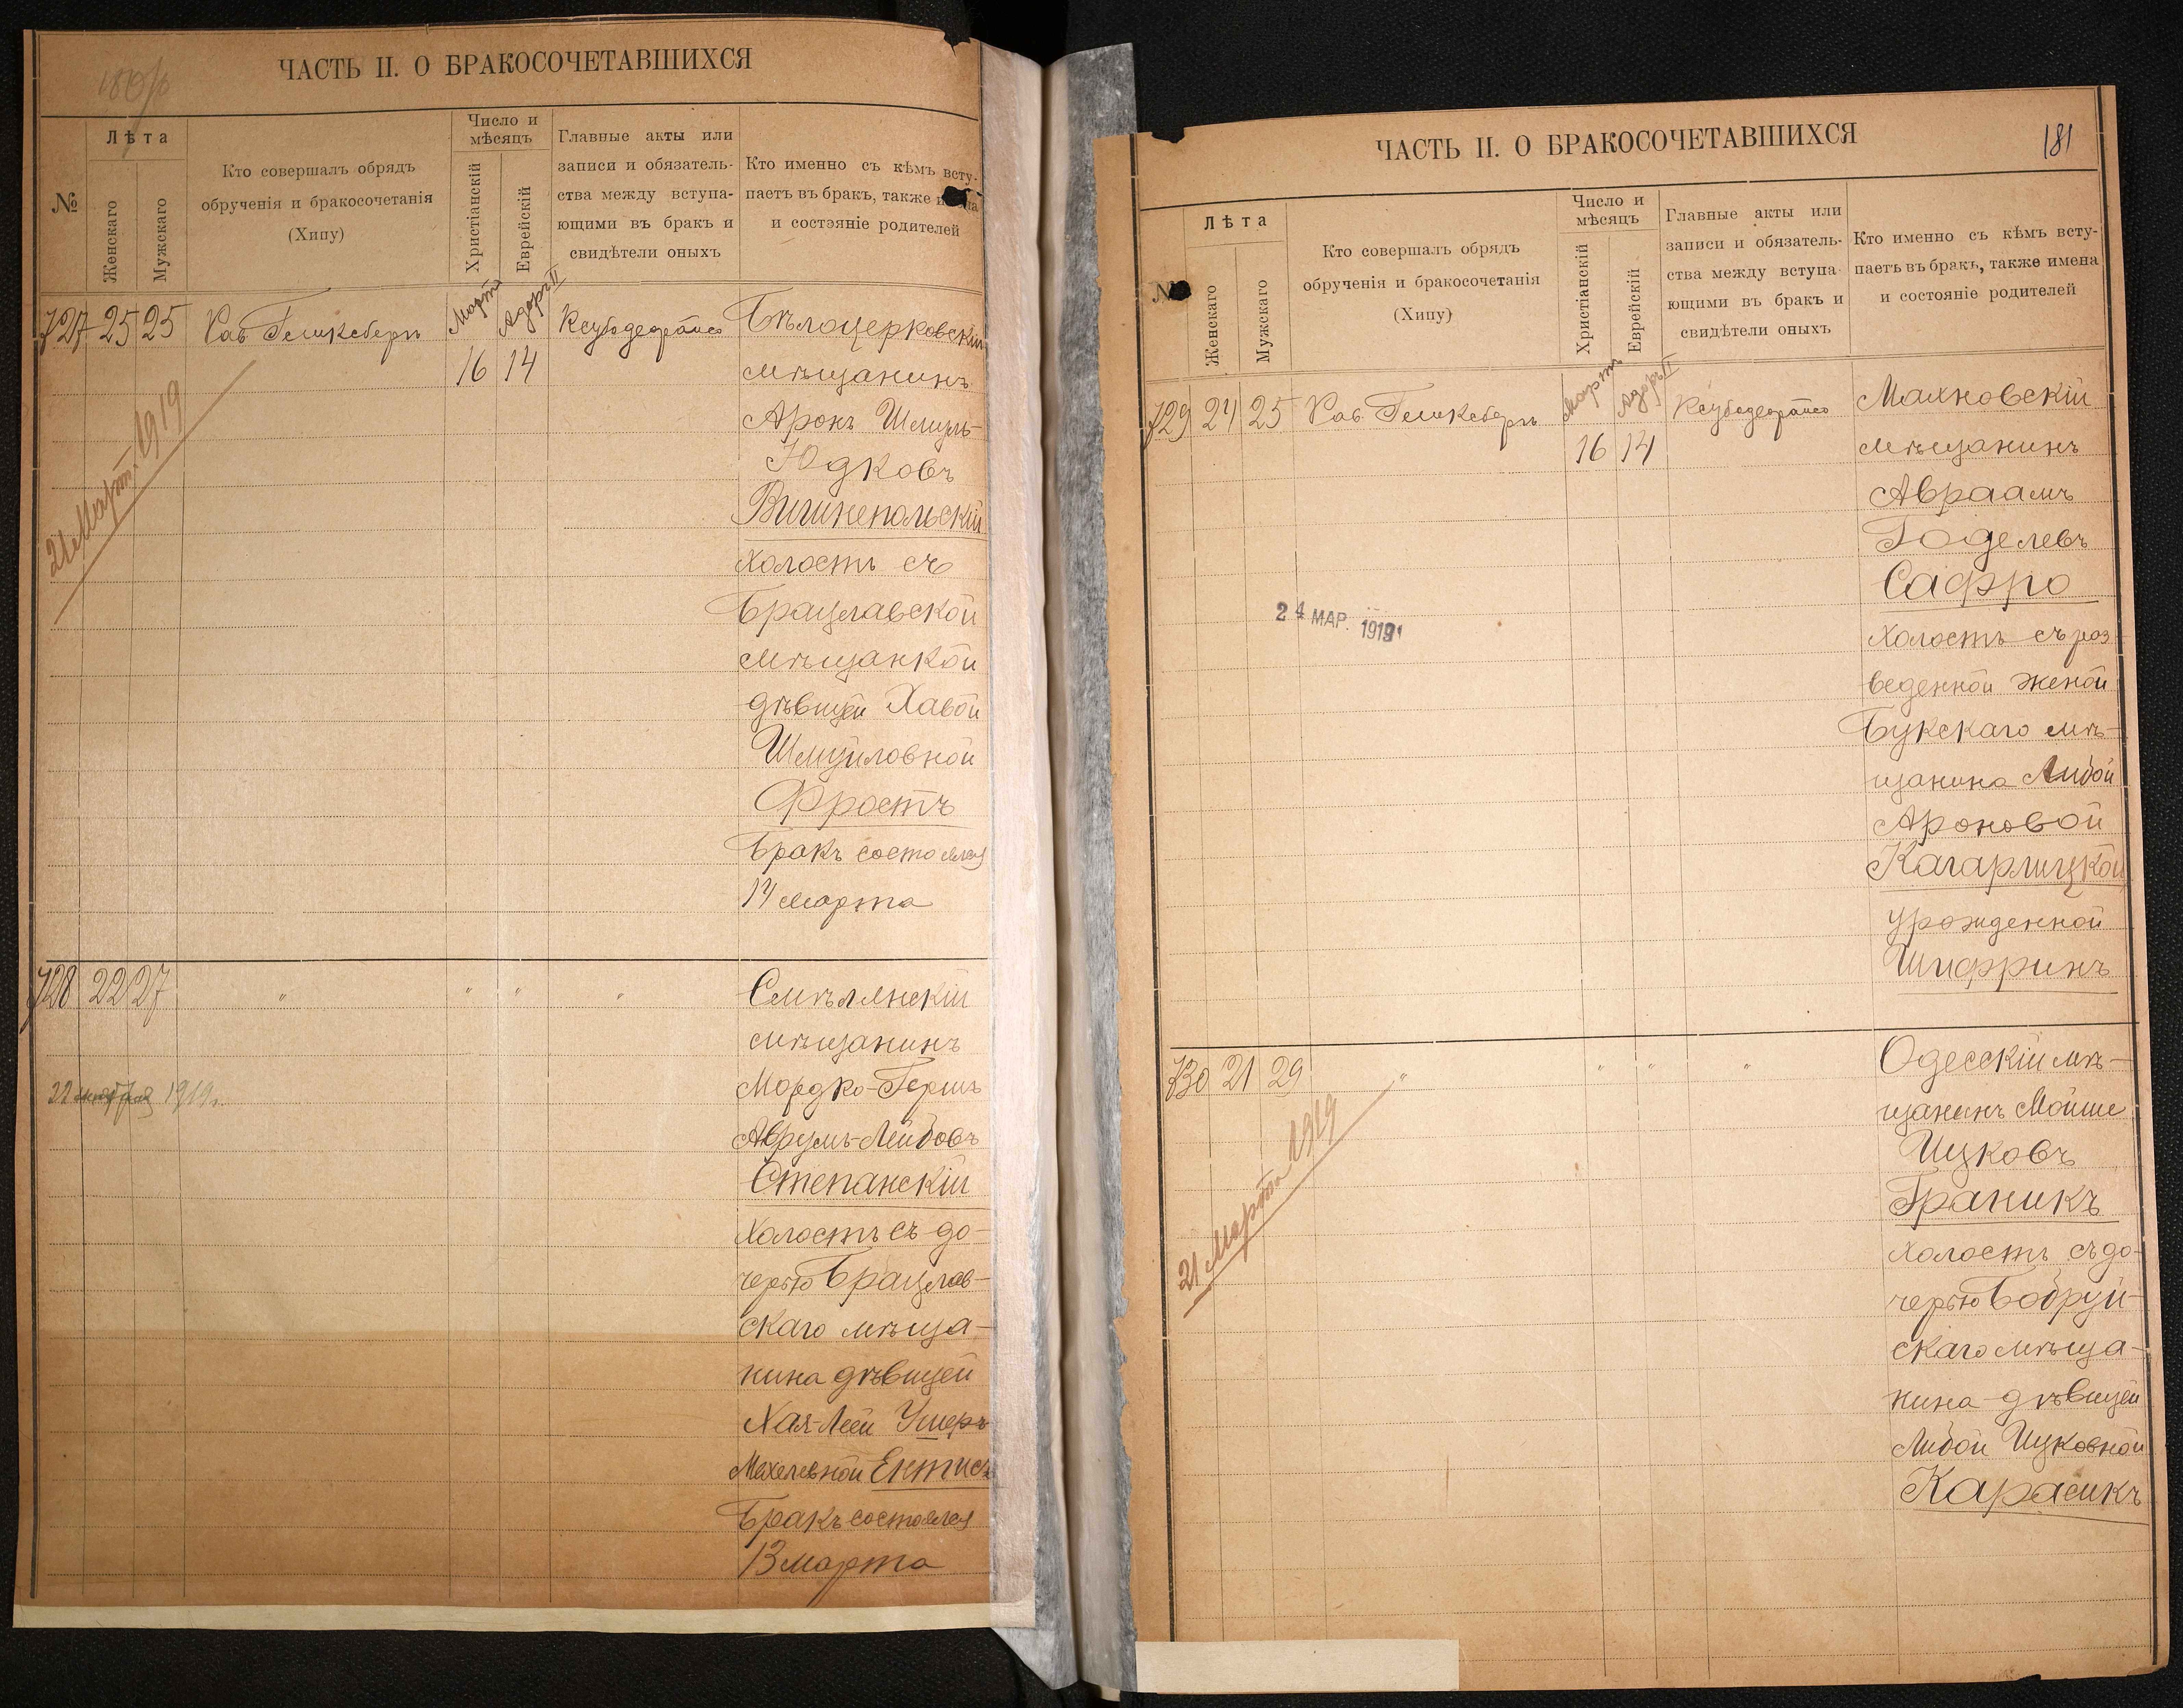 ЧАСТЬ II. О БРАКОСОЧЕТАВШИХСЯ
№
Лѣта
Женскаго
Мужскаго
Кто совершалъ обрядъ
обрученія и бракосочетанія
(Хипу)
Число и
мѣсяцъ
Христіанскій
Еврейскій
Главные акты или
записи и обязатель-
ства между вступа-
ющими въ бракъ и
свидѣтели оныхъ
Кто именно съ кѣмъ всту-
паетъ въ бракъ, также
и состэяніе родителей
727 25 25 Рав.
Мартъ
Адаръ II
16 14
21 Март. 1919
Бѣлоцерковскій
мѣщанинъ
Аронъ Шмуль-
Юдковъ
Вишнепольскій
холостъ съ
Брацлавской
мѣщанкой
дѣвицей Хавой
Шмуйловной
Фростъ
Бракъ состоялся
14 марта
728 22 27 " " " "
22 1919 г.
Смѣлянскій
мѣщанинъ
Мордко-Гершъ
Аврумъ-Лейбовъ
Степанскій
холостъ съ до-
черью Брацлав-
скаго мѣща-
нина дѣвицей
Хая-Леей Ушеръ
Махелевной Ентисъ
Бракъ состоялся
13 марта
ЧАСТЬ II. О БРАКОСОЧЕТАВШИХСЯ
181
Лѣта
Женскаго
Мужскаго
Кто совершалъ обрядъ
обрученія и бракосочетанія
(Хипу)
Число и
мѣсяцъ
Христіанскій
Еврейскій
Главные акты или
записи и обязатель-
ства между вступа
ющими въ бракъ и
свидѣтели оныхъ
Кто именно съ кѣмъ всту-
паетъ въ бракъ, также имена
и состоіяніе родителей
729 24 25 Рав.
Мартъ
Адаръ II
16 14
24 МАР. 1919
Махновскій
мѣщанинъ
Авраамъ
Годелевъ
Сафро
холостъ съ раз-
веденной женой
Букскаго мѣ-
щанина Либой
Ароновой
Кагарлицкой
урожденной
Шифринъ
730 21 29 " " " "
21 Марта 1919
Одесскій мѣ-
щанинъ Мойше
Ицковъ
Граникъ
холостъ съ до-
черью Бобруй-
скаго мѣща-
нина дѣвицей
Либой Ицковной
Карасикъ